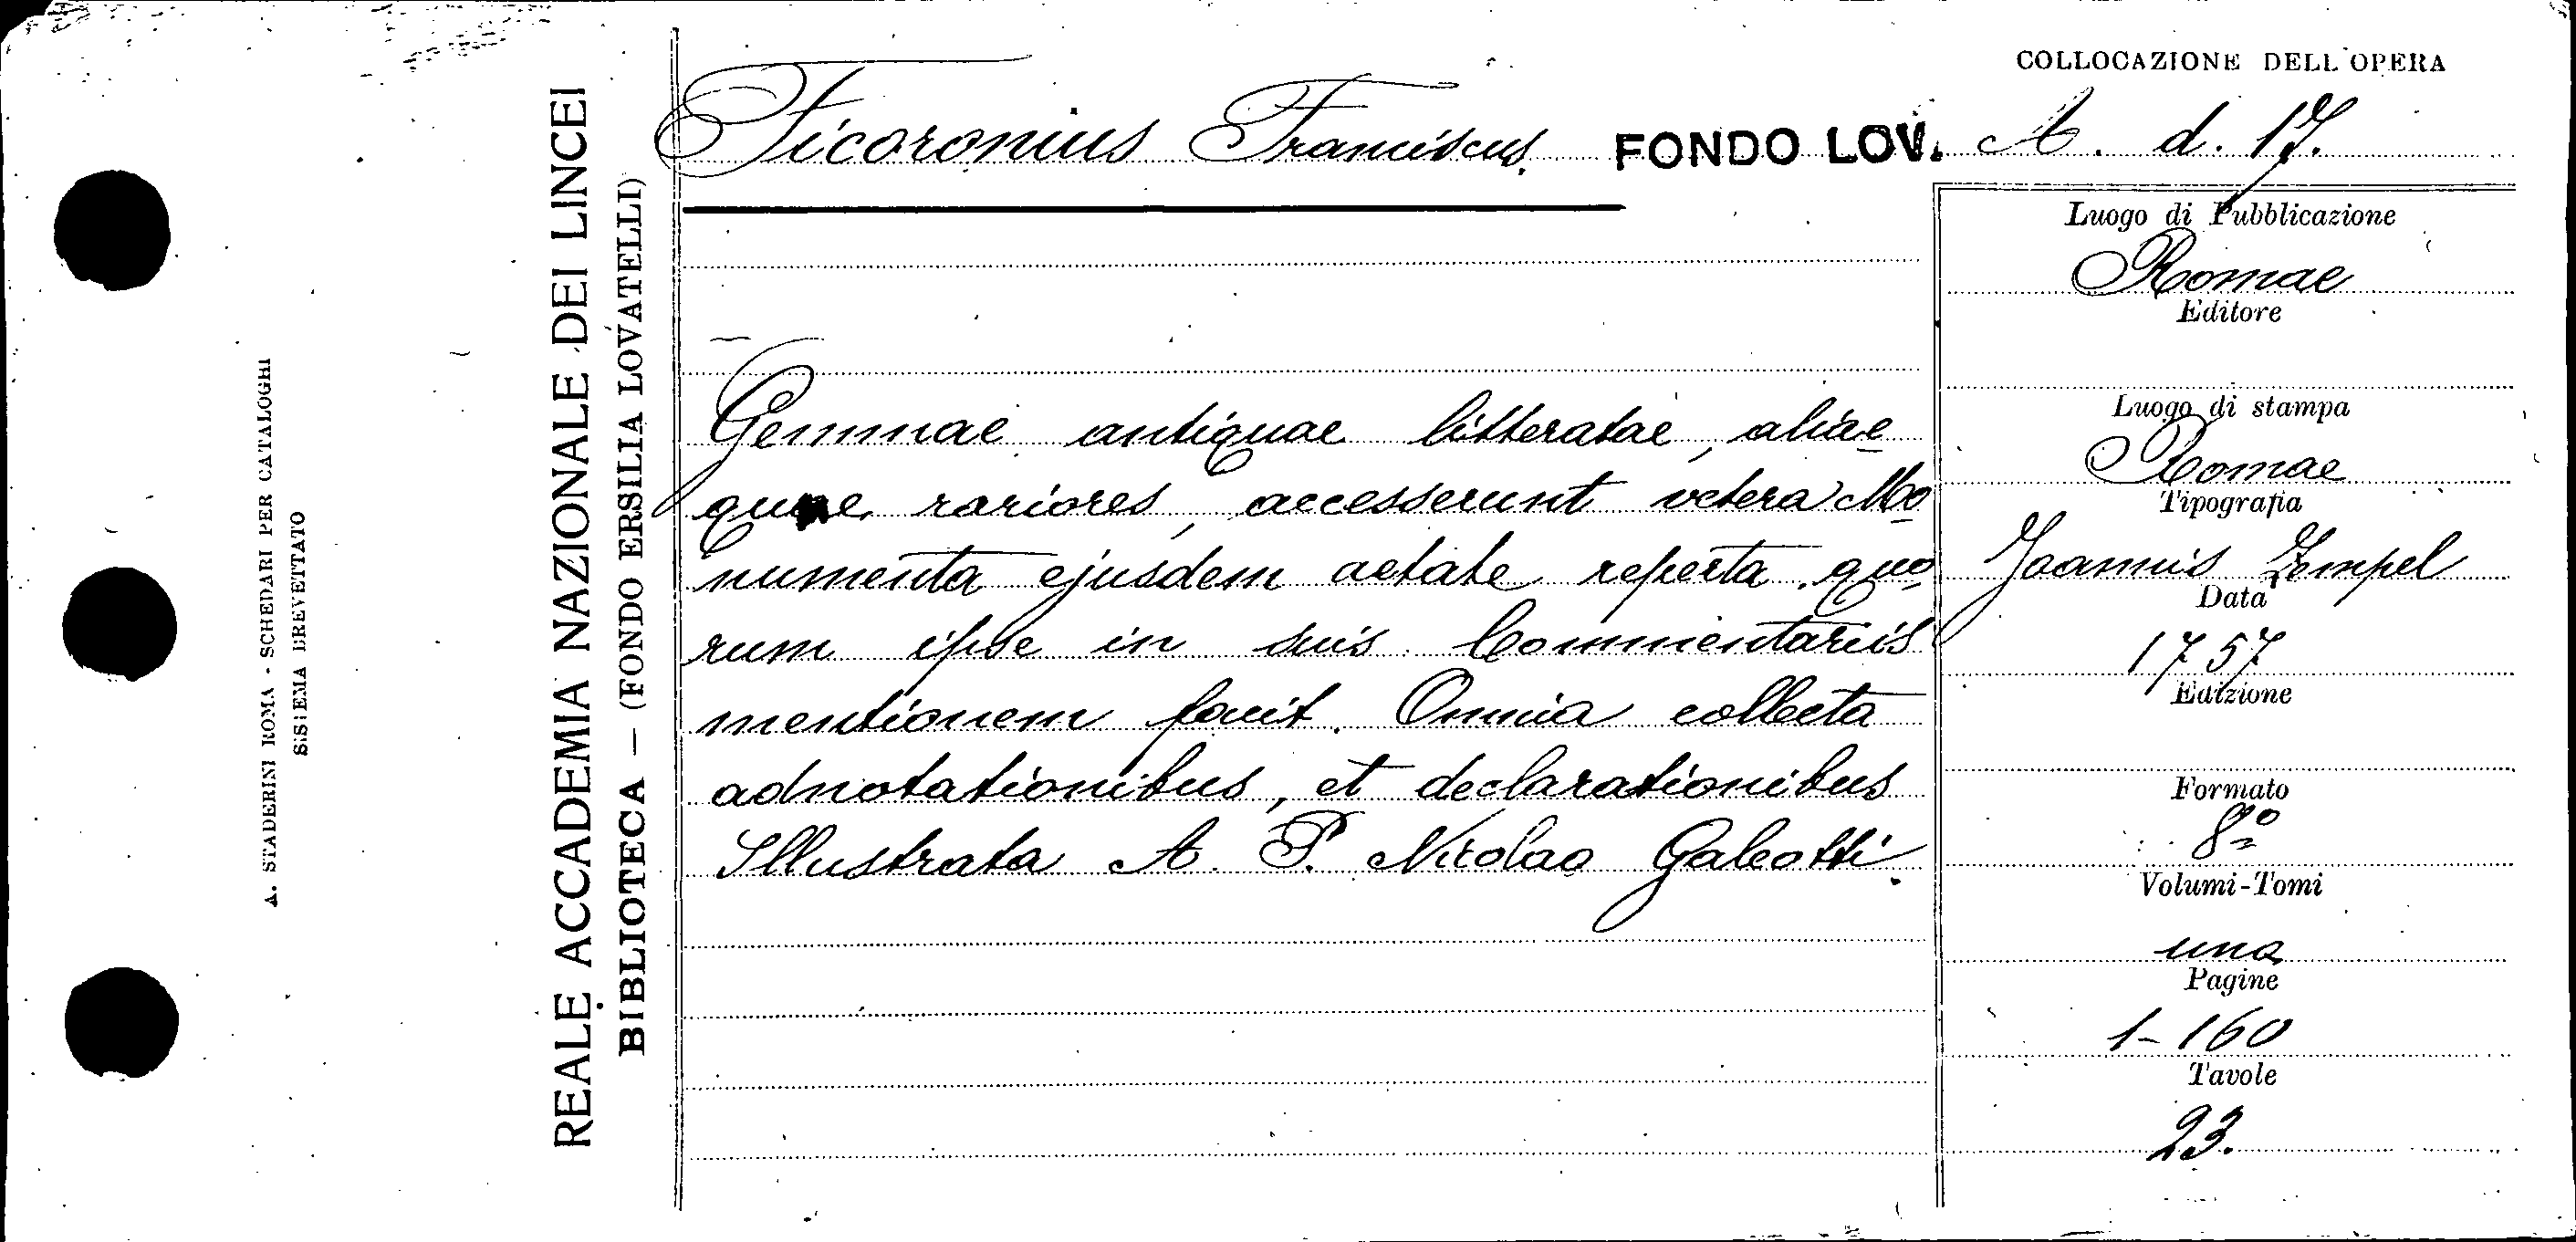 A. STADERINI ROMA - SCHEDARI PER CATALOGHI
SISTEMA BREVETTATO
REALE ACCADEMIA NAZIONALE DEI LINCEI
BIBLIOTECA — (FONDO ERSILIA LOVATELLI)
COLLOCAZIONE DELL'OPERA
Ficoronius Franciscus. FONDO LOV. A. d. 17.
Gemmae antiquae litteratae, aliae
quae rariores, accesserunt vetera Mo
numenta ejusdem aetate reperta, quo
rum ipse in suis Commentariis
mentionem facit. Omnia collecta
adnotationibus, et declarationibus
Illustrata A. P. Nicolao Galeotti.
Luogo di Pubblicazione
Romae
Editore
Luogo di stampa
Romae
Tipografia
Joannis Zempel
Data
1757
Edizione
Formato
8º
Volumi-Tomi
uno
Pagine
1-160
Tavole
23.